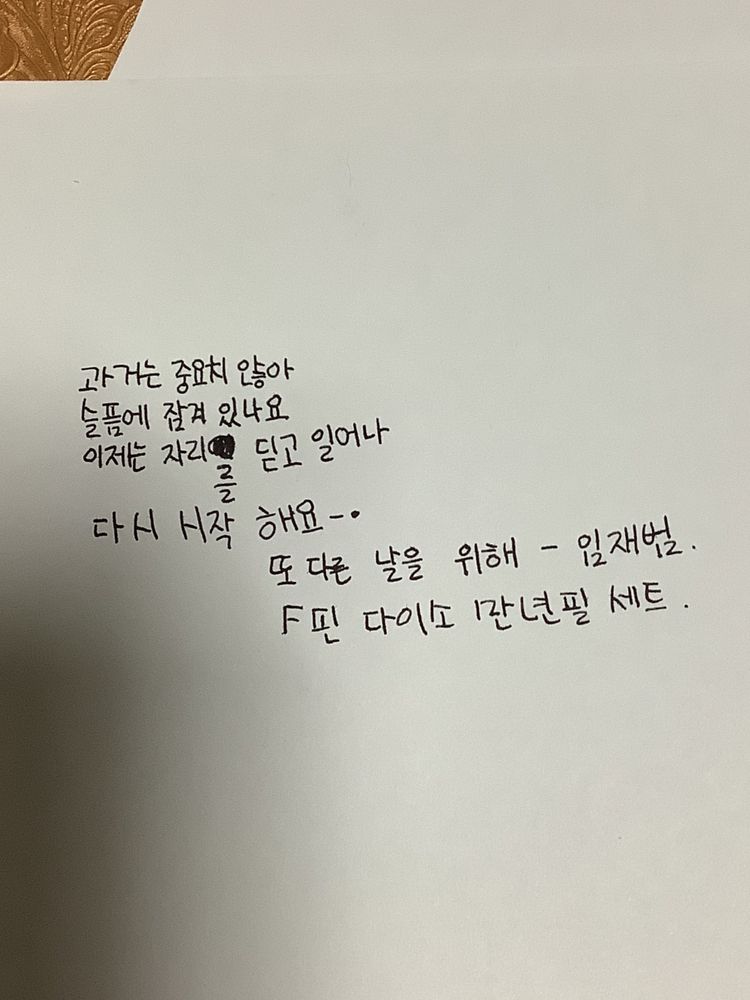 과거는 중요치 않아
슬픔에 잠겨 있나요
이제는 자리를 딛고 일어나
다시 시작 해요-.
또 다른 날을 위해 - 임재범.
F핀 다이소 만년필 세트.